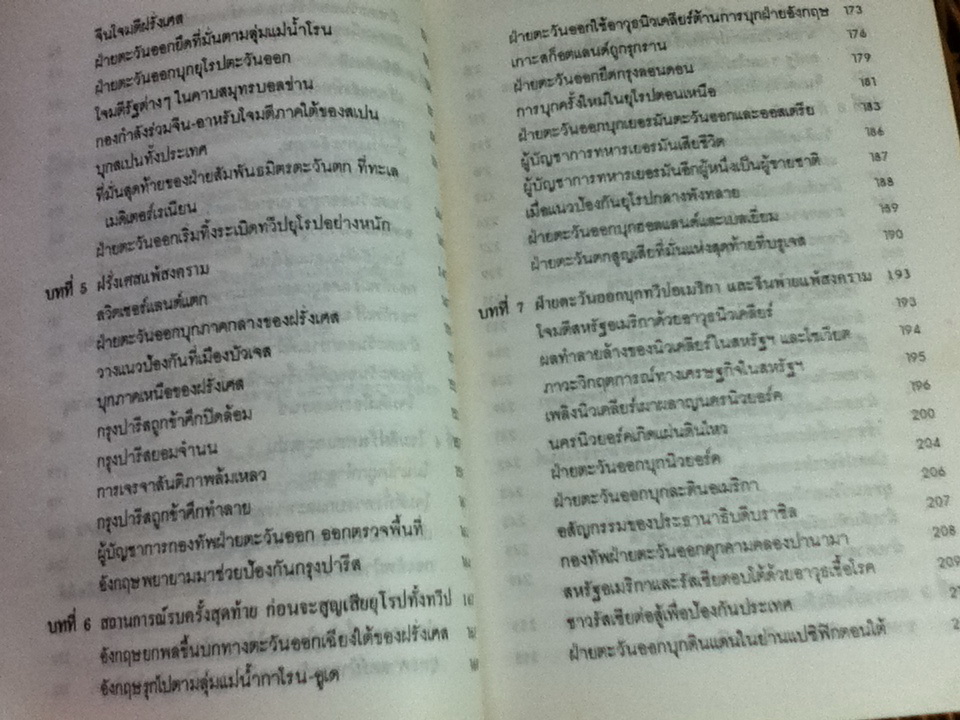 จีนโจมตีฝรั่งเศส
ฝ่ายตะวันออกยึดที่มั่นตามลุ่มแม่น้ำโรน
ฝ่ายตะวันออกบุกยุโรปตะวันออก
โจมตีรัฐต่างๆ ในคาบสมุทรบอลข่าน
กองกำลังร่วมจีน-อาหรับโจมตีภาคใต้ของสเปน
บุกสเปนทั้งประเทศ
ที่มั่นสุดท้ายของฝ่ายสัมพันธมิตรตะวันตก ที่ทะเล
เมดิเตอร์เรเนียน
ฝ่ายตะวันออกเริ่มทิ้งระเบิดทวีปยุโรปอย่างหนัก
บทที่ 5 ฝรั่งเศสแพ้สงคราม
สวิตเซอร์แลนด์แตก
ฝ่ายตะวันออกบุกภาคกลางของฝรั่งเศส
วางแนวป้องกันที่เมืองบัวเจส
บุกภาคเหนือของฝรั่งเศส
กรุงปารีสถูกข้าศึกปิดล้อม
กรุงปารีสยอมจำนน
การเจรจาสันติภาพล้มเหลว
กรุงปารีสถูกข้าศึกทำลาย
ผู้บัญชาการกองทัพฝ่ายตะวันออก ออกตรวจพื้นที่
อังกฤษพยายามมาช่วยป้องกันกรุงปารีส
บทที่ 6 สถานการณ์รบครั้งสุดท้าย ก่อนจะสูญเสียยุโรปทั้งทวีป
อังกฤษยกพลขึ้นบกทางตะวันออกเฉียงใต้ของฝรั่งเศส
อังกฤษรุกไปตามลุ่มแม่น้ำกาโรน-ชูเด
ฝ่ายตะวันออกใช้อาวุธนิวเคลียร์ต้านการบุกฝ่ายอังกฤษ 173
เกาะสก็อตแลนด์ถูกรุกราน 176
ฝ่ายตะวันออกยึดกรุงลอนดอน 179
การบุกครั้งใหม่ในยุโรปตอนเหนือ 181
ฝ่ายตะวันออกบุกเยอรมันตะวันออกและออสเตรีย 183
ผู้บัญชาการทหารเยอรมันเสียชีวิต 186
ผู้บัญชาการทหารเยอรมันอีกผู้หนึ่งเป็นผู้ขายชาติ 187
เมื่อแนวป้องกันยุโรปกลางพังทลาย 188
ฝ่ายตะวันออกบุกฮอลแลนด์และเบลเยี่ยม 189
ฝ่ายตะวันตกสูญเสียที่มั่นแห่งสุดท้ายที่บรูเจส 190
บทที่ 7 ฝ่ายตะวันออกบุกทวีปอเมริกา และจีนพ่ายแพ้สงคราม 193
โจมตีสหรัฐอเมริกาด้วยอาวุธนิวเคลียร์ 193
ผลทำลายล้างของนิวเคลียร์ในสหรัฐฯ และโซเวียต 194
ภาวะวิกฤตการณ์ทางเศรษฐกิจในสหรัฐฯ 195
เพลิงนิวเคลียร์เผาผลาญนครนิวยอร์ค 196
นครนิวยอร์คเกิดแผ่นดินไหว 200
ฝ่ายตะวันออกบุกนิวยอร์ค 204
ฝ่ายตะวันออกบุกละตินอเมริกา 206
อสัญกรรมของประธานาธิบดีบราซิล 207
กองทัพฝ่ายตะวันออกคุกคามคลองปานามา 208
สหรัฐอเมริกาและรัสเซียตอบโต้ด้วยอาวุธเชื้อโรค 209
ชาวรัสเซียต่อสู้เพื่อป้องกันประเทศ
ฝ่ายตะวันออกบุกดินแดนในย่านแปซิฟิกตอนใต้